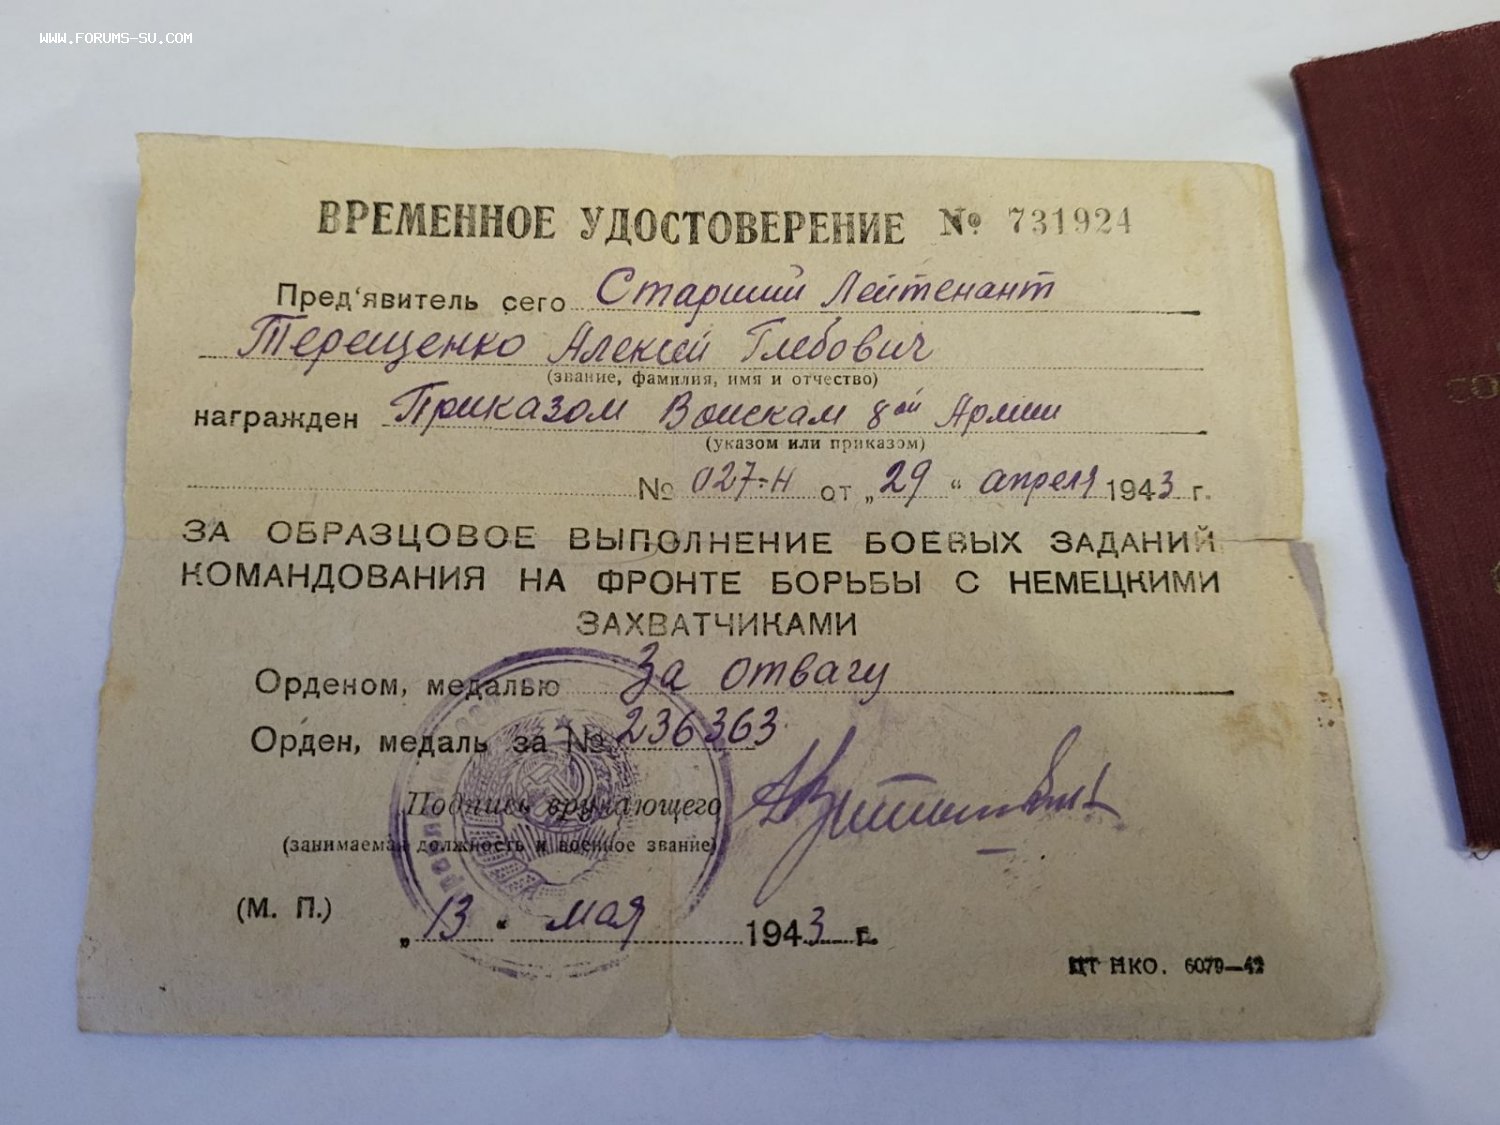 WWW.FORUMS-SU.COM
ВРЕМЕННОЕ УДОСТОВЕРЕНИЕ № 731924
Пред'явитель сего Старший Лейтенант
Терещенко Алексей Глебович
(звание, фамилия, имя и отчество)
награжден Приказом Войскам 8ой Армии
(указом или приказом)
№ 027-н от „29“ апреля 1943 г.
ЗА ОБРАЗЦОВОЕ ВЫПОЛНЕНИЕ БОЕВЫХ ЗАДАНИЙ
КОМАНДОВАНИЯ НА ФРОНТЕ БОРЬБЫ С НЕМЕЦКИМИ
ЗАХВАТЧИКАМИ
Орденом, медалью За отвагу
Орден, медаль за № 236363
Подпись вручающего
(занимаемая должность и военное звание)
(М. П.)
„13“ мая 1943 г.
ЦТ НКО. 6079—42